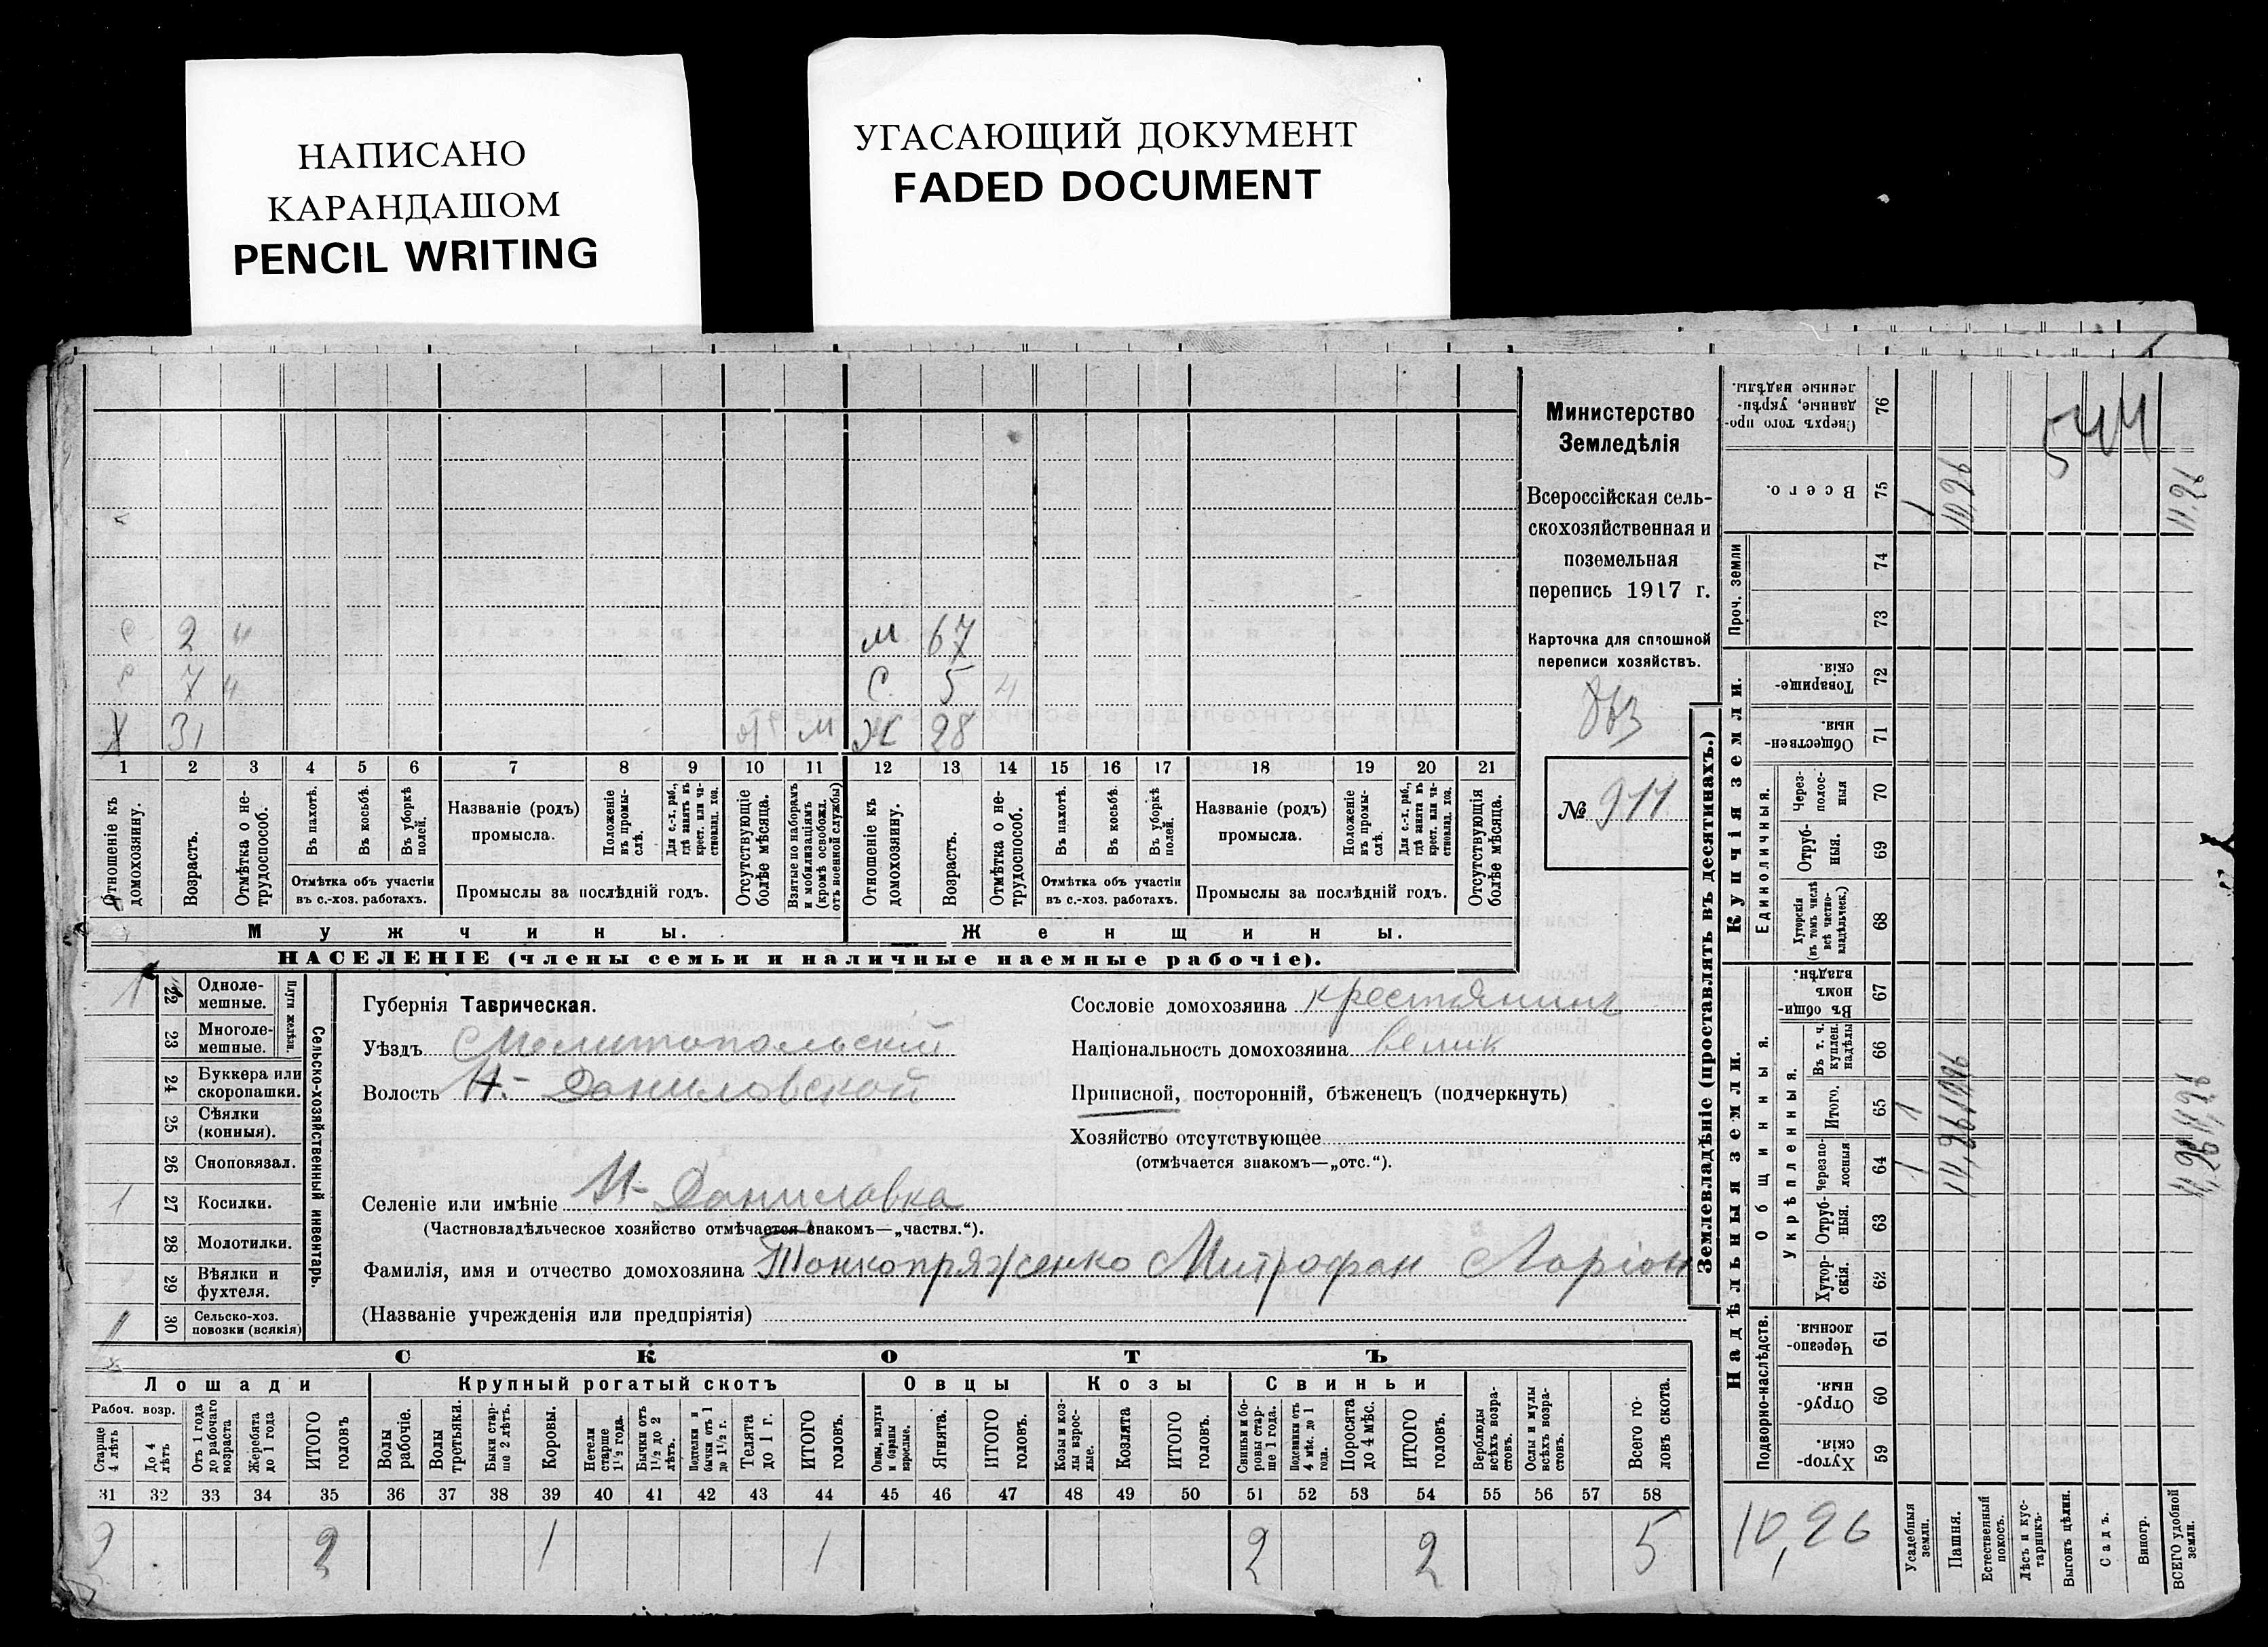 НАПИСАНО
КАРАНДАШОМ
PENCIL WRITING
УГАСАЮЩИЙ ДОКУМЕНТ
FADED DOCUMENT
с 2 ч
м 67
с 7 ч
с 5 ч
х 31
м ж 28
1 2 3 4 5 6 7 8 9 10 11 12 13 14 15 16 17 18 19 20 21
Отношеніе къ домохозяину.
Возрастъ.
Отмѣтка о нетрудоспособ.
Въ пахотѣ.
Въ косьбѣ.
Въ уборкѣ полей.
Отмѣтка объ участіи
въ с.-хоз. работахъ.
Названіе (родъ)
промысла.
Положеніе въ промыслѣ.
Для с.-х. раб., гдѣ занятъ въ крест. или частновлад. хоз.
Промыслы за послѣдній годъ.
Отсутствующіе болѣе мѣсяца.
Взятые по наборамъ и мобилизаціямъ (кромѣ освобожд. отъ военной службы)
Отношеніе къ домохозяину.
Возрастъ.
Отмѣтка о нетрудоспособ.
Въ пахотѣ.
Въ косьбѣ.
Въ уборкѣ полей.
Отмѣтка объ участіи
въ с.-хоз. работахъ.
Названіе (родъ)
промысла.
Положеніе въ промыслѣ.
Для с.-х. раб., гдѣ занята въ крест. или частновлад. хоз.
Промыслы за послѣдній годъ.
Отсутствующія болѣе мѣсяца.
Мужчины.
Женщины.
НАСЕЛЕНІЕ (члены семьи и наличные наемные рабочіе).
Министерство
Земледѣлія
Всероссійская сель-
скохозяйственная и
поземельная
перепись 1917 г.
Карточка для сплошной
переписи хозяйствъ.
№ 911
1 22 Одноле-
мешные.
23 Многоле-
мешные.
Плуги желѣзн.
24 Буккера или
скоропашки.
25 Сѣялки
(конныя).
26 Сноповязал.
1 27 Косилки.
28 Молотилки.
29 Вѣялки и
фухтеля.
1 30 Сельско-хоз.
повозки (всякія)
Сельско-хозяйственный инвентарь.
Губернія Таврическая.
Уѣздъ Мелитопольскій
Волость Н-Даниловской
Сословіе домохозяина крестьянинъ
Національность домохозяина велик
Приписной, посторонній, бѣженец (подчеркнуть)
Хозяйство отсутствующее
(отмѣчается знакомъ—„отс.“).
Селеніе или имѣніе Н-Даниловка
(Частновладѣльческое хозяйство отмѣчается знакомъ—„частвл.“).
Фамилія, имя и отчество домохозяина Тонкопряженко Митрофан Ларіон
(Названіе учрежденія или предпріятія)
СКОТЪ
Лошади
Крупный рогатый скотъ
Овцы
Козы
Свиньи
Рабоч. возр.
Старще 4 лѣтъ
До 4 лѣтъ
Отъ 1 года до рабочаго возраста
Жеребята до 1 года
ИТОГО головъ
Волы рабочіе.
Волы третьяки.
Быки старше 2 лѣтъ.
Коровы.
Нетели старше 1½ года.
Бычки отъ 1½ до 2 лѣтъ.
Подтелки и бычки отъ 1 до 1½ г.
Телята до 1 г.
ИТОГО головъ.
Овцы, валухи и бараны взрослые.
Ягнята.
ИТОГО головъ.
Козы и козлы взрослые.
Козлята
ИТОГО головъ.
Свиньи и боровы старше 1 года.
Подсвинки отъ 4 мѣс. до 1 года.
Поросята до 4 мѣс.
ИТОГО головъ.
Верблюды всѣхъ возрастовъ.
Ослы и мулы всѣхъ возрастовъ.
Всего головъ скота.
31 32 33 34 35 36 37 38 39 40 41 42 43 44 45 46 47 48 49 50 51 52 53 54 55 56 57 58
2 2 1 1 2 2 5
Землевладѣніе (проставлять въ десятинахъ.)
Купчія земли.
Надѣльныя земли.
Сверхъ того проданные, укрѣпленные надѣлы. 76
544
Всего. 75 1 10,26 11,26
Проч. земли
74
73
Товарищескія. 72
Общественныя. 71
Единоличныя.
Через-полосныя 70
Отрубныя. 69
Хуторскія (въ томъ числѣ всѣ частновладѣльческ.) 68
Общинныя.
Въ общинномъ владѣн. 67
Укрѣпленныя.
Въ т. ч. куплен. надѣлы 66
Итого. 65 1
Черезполосныя 64 1
Отрубныя. 63
Хуторскія. 62
Подворно-наслѣдств.
Черезполосныя. 61
Отрубныя. 60
Хуторскія. 59
10,26
Усадебныя земли.
Пашня.
Естественный покосъ.
Лѣсъ и кустарникъ.
Выгонъ цѣлин.
Садъ.
Виногр.
ВСЕГО удобной земли.